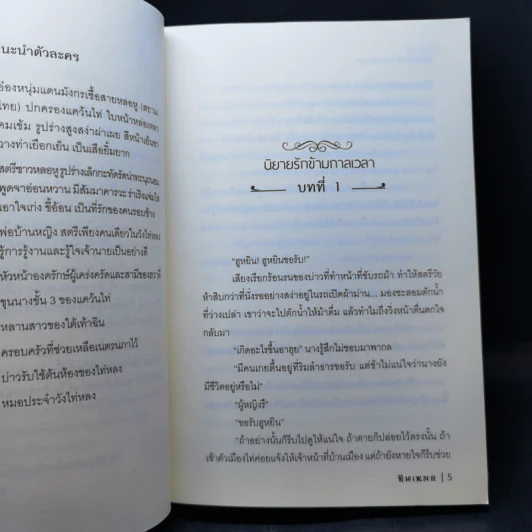 แนะนำตัวละคร
อ๋องหนุ่มแดนมังกรเชื้อสายหลอหู
ไทย) ปกครองแคว้นไท่ ใบหน้าหล่อเหลา
คมเข้ม รูปร่างสูงสง่าผ่าเผย สีหน้าเย็นชา
วางท่าเยือกเย็น เป็นเสือยิ้มยาก
สตรีชาวหลอหู รูปร่างเล็กกะทัดรัดน่าทะนุถนอม
พูดจาอ่อนหวาน มีสัมมาคารวะ ร่าเริงแจ่มใส
เอาใจเก่ง ขี้อ้อน เป็นที่รักของคนรอบข้าง
พ่อบ้านหญิง สตรีเพียงคนเดียวในวังไท่หลง
รู้การรู้งานและรู้ใจเจ้านายเป็นอย่างดี
หัวหน้าองครักษ์ผู้เคร่งครัดและสามีของ
ขุนนางชั้น 3 ของแคว้นไท่
หลานสาวของใต้เท้าฉิน
ครอบครัวที่ช่วยเหลือเนตรนภาไว้
บ่าวรับใช้ต้นห้องของไท่หลง
หมอประจำวังไท่หลง
นิยายรักข้ามกาลเวลา
บทที่ 1
"ฮูหยิน! ฮูหยินขอรับ!"
เสียงเรียกร้อนรนของบ่าวที่ทำหน้าที่ขับรถม้า ทำให้สตรีวัย
ห้าสิบกว่าที่นั่งรออย่างสง่าอยู่ในรถเปิดผ้าม่าน... มองชะลอมตักน้ำ
ที่ว่างเปล่า เขาว่าจะไปตักน้ำให้ม้าดื่ม แล้วทำไมถึงวิ่งหน้าตื่นตกใจ
กลับมา
"เกิดอะไรขึ้นอาฮุย" นางรู้สึกไม่ชอบมาพากล
"มีคนเกยตื้นอยู่ที่ริมลำธารขอรับ แต่ข้าไม่แน่ใจว่านางยัง
มีชีวิตอยู่หรือไม่"
"ผู้หญิงรึ"
"ขอรับฮูหยิน"
"ถ้าอย่างนั้นก็รีบไปดูให้แน่ใจ ถ้าตายก็ปล่อยไว้ตรงนั้น ถ้า
เข้าตัวเมืองไท่ค่อยแจ้งให้เจ้าหน้าที่บ้านเมือง แต่ถ้ายังหายใจก็รีบช่วย
| 5